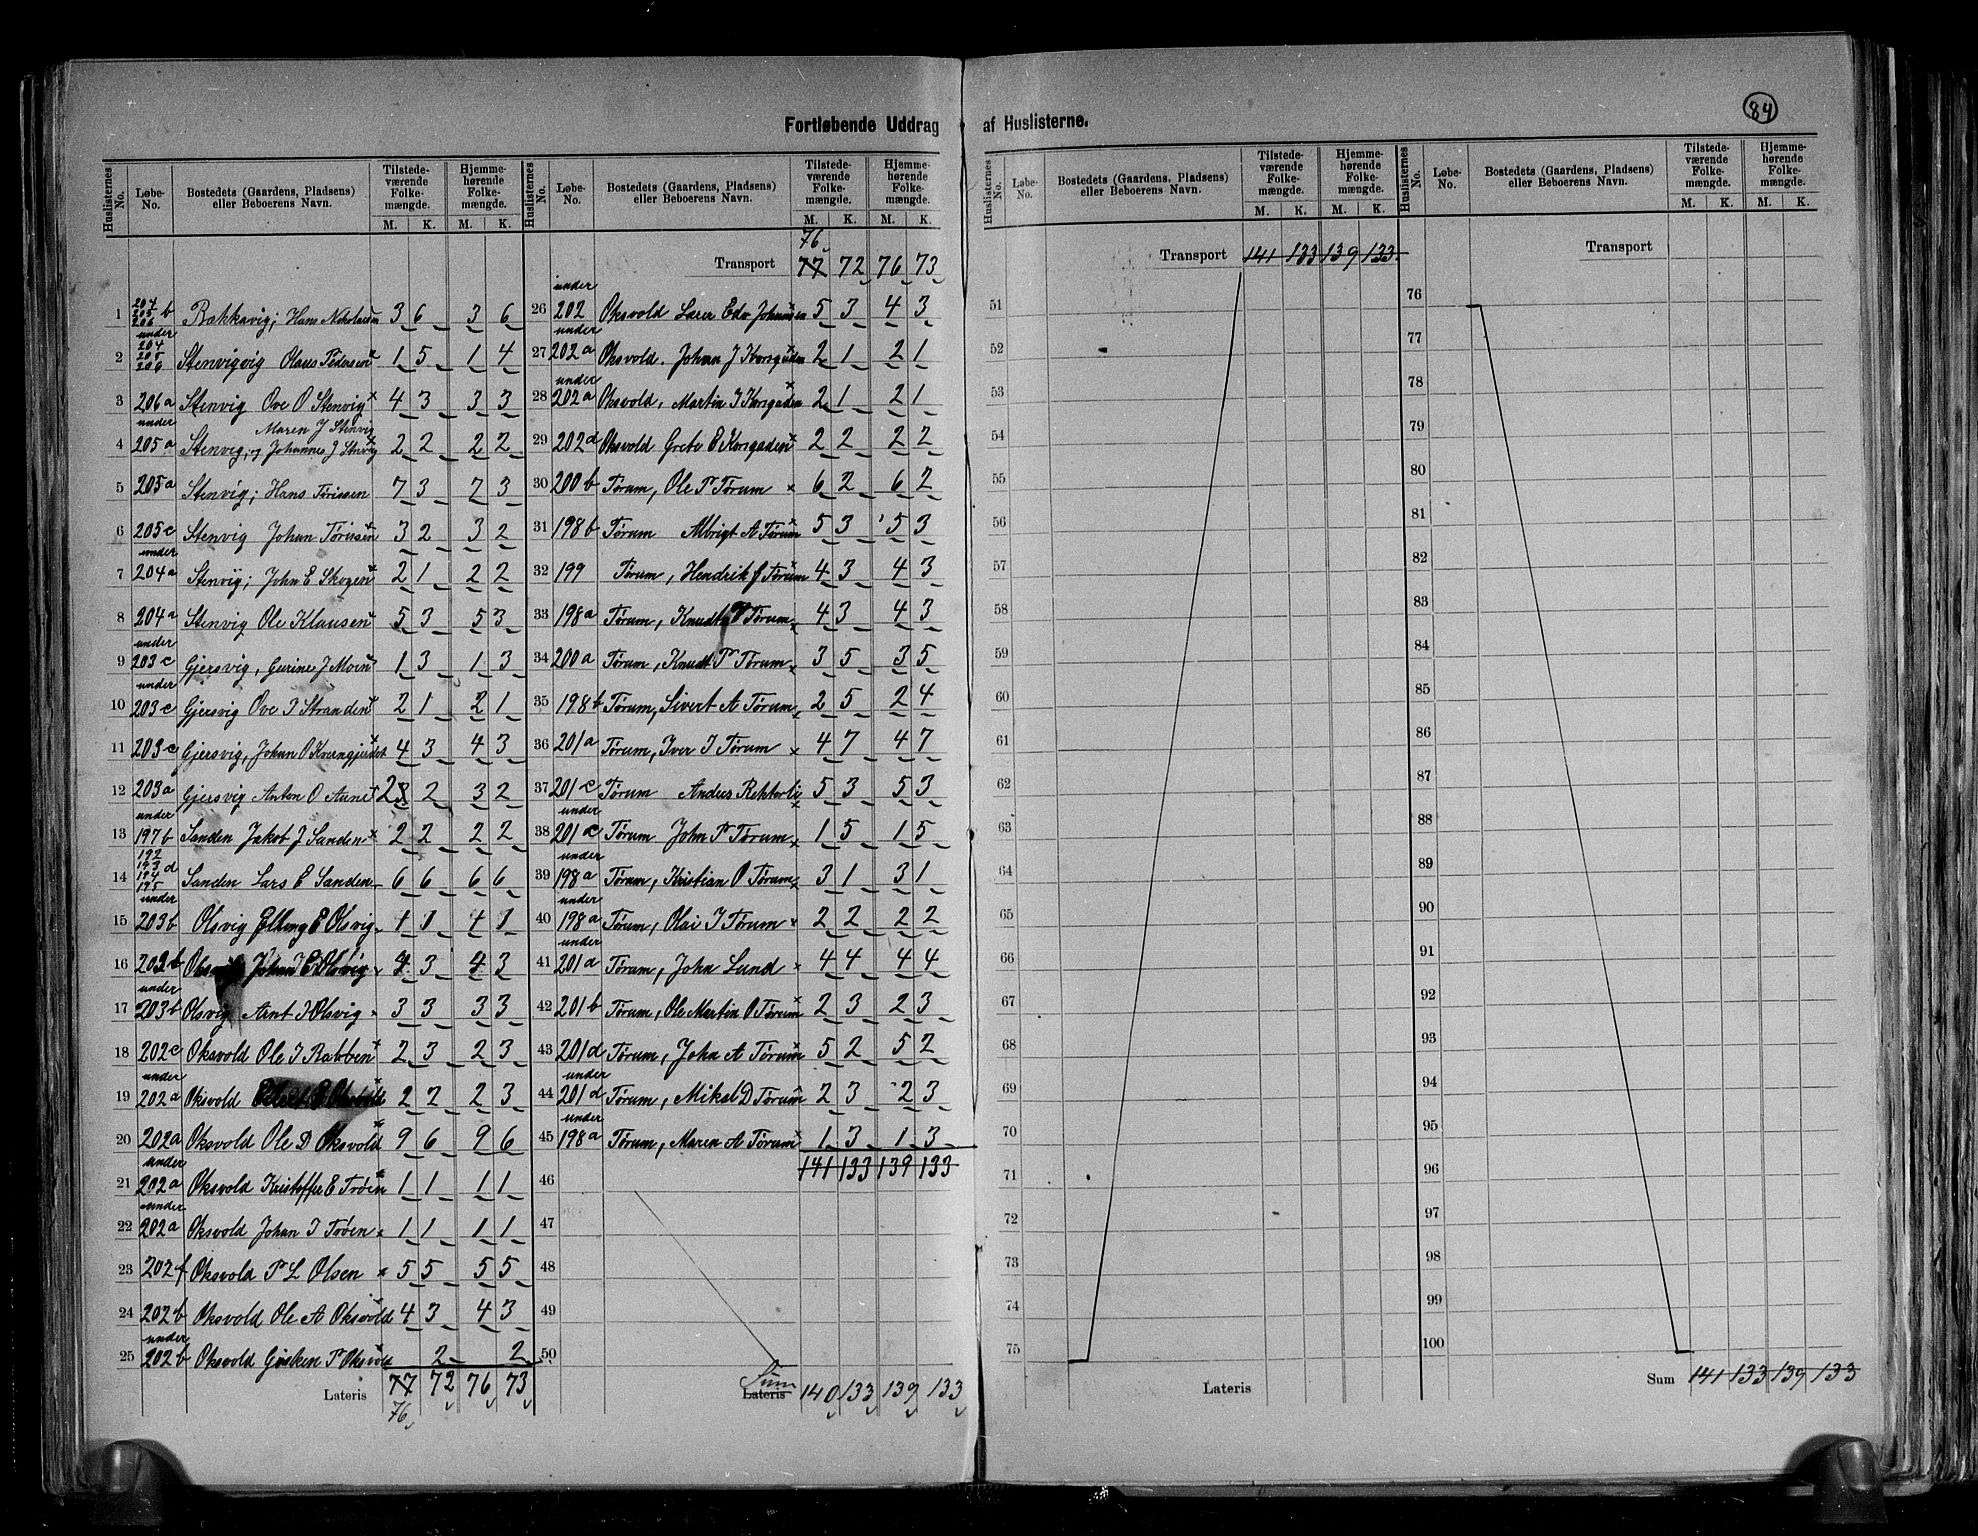 84
Fortløbende Uddrag af Huslisterne.
Huslisternes No. Løbe-No. Bostedets (Gaardens, Pladsens) eller Beboerens Navn. Tilstedeværende Folkemængde. M. K. Hjemmehørende Folkemængde. M. K.
1 204 205 206 b Rækkavig; Hans Nikolaisen 3 6 3 6
2 under 204 205 206 Stenvigvig Olaus Pedersen 1 5 1 4
3 206a Stenvig Ove O Stenvig 4 3 3 3
4 under 205a Stenvig; Maren J Stenvig Johannes J Stenvig 2 2 2 2
5 205a Stenvig; Hans Tørissen 7 3 7 3
6 205c Stenvig Johan Tørissen 3 2 3 2
7 under 204a Stenvig; John E Skogen 2 1 2 2
8 204a Stenvig Ole Klausen 5 3 5 3
9 under 203c Gjersvig, Gurine J Moen 1 3 1 3
10 under 203c Gjersvig Ove J Stranden 2 1 2 1
11 203c Gjersvig, Johan O 4 3 4 3
12 203a Gjersvig Anton O Aune 2 2 3 2
13 under 197b Sanden Jakob J Sanden 2 2 2 2
14 192 193 194 195 d Sanden Lars E Sanden 6 6 6 6
15 under 203b Olsvig Elling E Olsvig 1 1 1 1
16 203b Olsvig Johan E Olsvig 4 3 4 3
17 under 203b Olsvig Arnt J Olsvig 3 3 3 3
18 202c Oksvold Ole I Rabben 2 3 2 3
19 under 202a Oksvold 2 2 2 3
20 202a Oksvold Ole D Oksvold 9 6 9 6
21 under 202a Oksvold Kristoffer E Trøen 1 1 1 1
22 under 202a Oksvold Johan I Trøen 1 1 1 1
23 202f Oksvold P L Olsen 5 5 5 5
24 202b Oksvold Ole A Oksvold 4 3 4 3
25 under 202b Oksvold Gjøsken P Oksvold 2 2
Lateris 77 72 76 73
76
Huslisternes No. Løbe-No. Bostedets (Gaardens, Pladsens) eller Beboerens Navn. Tilstedeværende Folkemængde. M. K. Hjemmehørende Folkemængde. M. K.
76
Transport 77 72 76 73
26 under 202 Oksvold Lorer Edv Johansen 5 3 4 3
27 under 202a Oksvold. Johan J Korsgaden 2 1 2 1
28 under 202a Oksvold, Martin J Korsgaden 2 1 2 1
29 202d Oksvold Grete E Korsgaden 2 2 2 2
30 200b Tørum, Ole P Tørum 6 2 6 2
31 198b Tørum Albrigt A Tørum 5 3 5 3
32 199 Tørum, Hendrik J Tørum 4 3 4 3
33 198a Tørum, Knudt Tørum 4 3 4 3
34 200a Tørum, Knudt P Tørum 3 5 3 5
35 198b Tørum, Sivert A Tørum 2 5 2 4
36 201a Tørum, Iver I Tørum 4 7 4 7
37 201c Tørum Anders Rektorli 5 3 5 3
38 under 201c Tørum John P Tørum 1 5 1 5
39 under 198a Tørum, Kristian O Tørum 3 1 3 1
40 under 198a Tørum, Olai I Tørum 2 2 2 2
41 under 201d Tørum, John Lund 4 4 4 4
42 201b Tørum, Ole Martin O Tørum 2 3 2 3
43 201d Tørum, John A Tørum 5 2 5 2
44 under 201d Tørum, Mikal D Tørum 2 3 2 3
45 under 198a Tørum, Maren A Tørum 1 3 1 3
46 141 133 139 133
47
48
49
50
Sum Lateris 140 133 139 133
Huslisternes No. Løbe-No. Bostedets (Gaardens, Pladsens) eller Beboerens Navn. Tilstedeværende Folkemængde. M. K. Hjemmehørende Folkemængde. M. K.
Transport 141 133 139 133
51
52
53
54
55
56
57
58
59
60
61
62
63
64
65
66
67
68
69
70
71
72
73
74
75
Lateris
Huslisternes No. Løbe-No. Bostedets (Gaardens, Pladsens) eller Beboerens Navn. Tilstedeværende Folkemængde. M. K. Hjemmehørende Folkemængde. M. K.
Transport
76
77
78
79
80
81
82
83
84
85
86
87
88
89
90
91
92
93
94
95
96
97
98
99
100
Sum 141 133 139 133